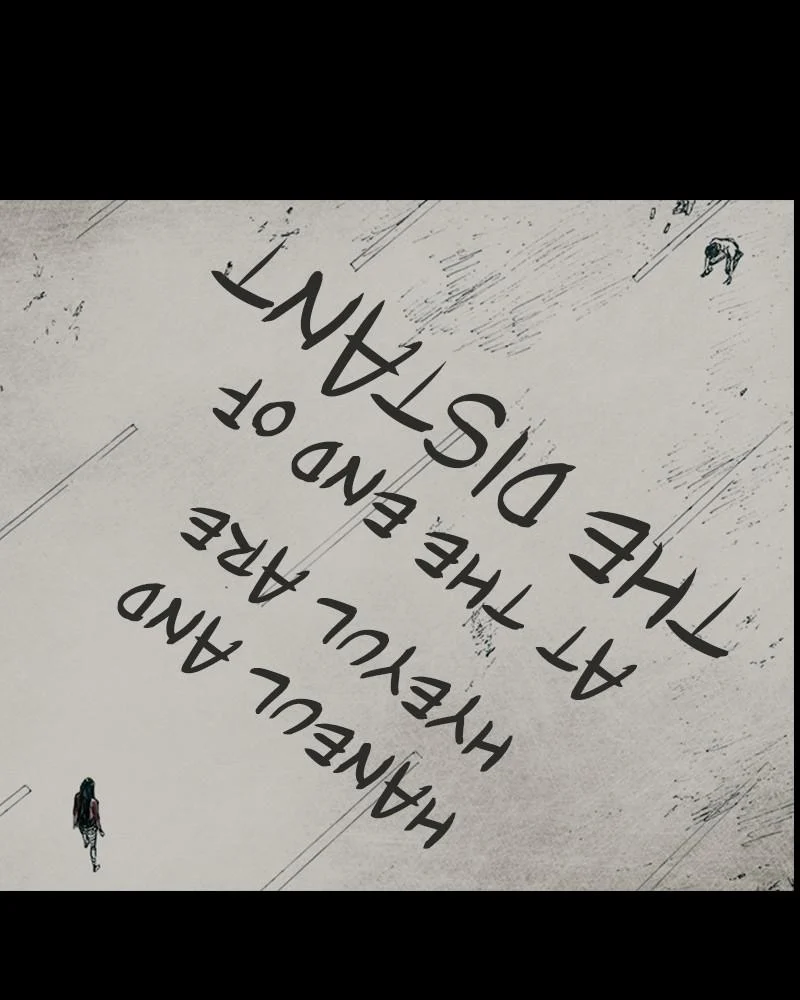 HANEUL AND
HYEYUL ARE
AT THE END OF
THE DISTANT